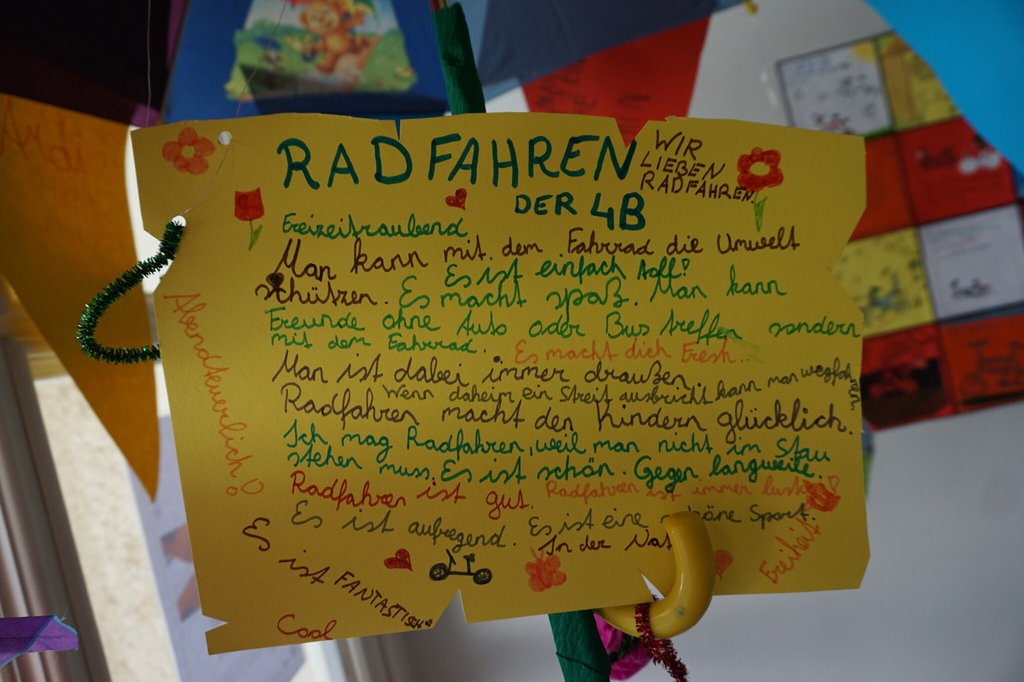 RADFAHREN
WIR
LIEBEN
RADFAHREN
DER 4B
Freizeitraubend
Man kann mit dem Fahrrad die Umwelt
schützen. Es ist einfach toll!
Es macht spaß. Man kann
Freunde ohne Auto oder Bus treffen sondern
mit dem Fahrrad. Es macht dich Fresh...
Man ist dabei immer draußen.
Wenn daheim ein Streit ausbricht kann man wegfahren.
Radfahren macht den Kindern glücklich.
Ich mag Radfahren, weil man nicht im Stau
stehen muss. Es ist schön. Gegen langweile
Radfahren ist gut. Radfahren ist immer
Es ist aufregend. Es ist eine Sport.
In der
Abendteuerlich!
Es ist FANTASTISCH
Cool
Freiheit